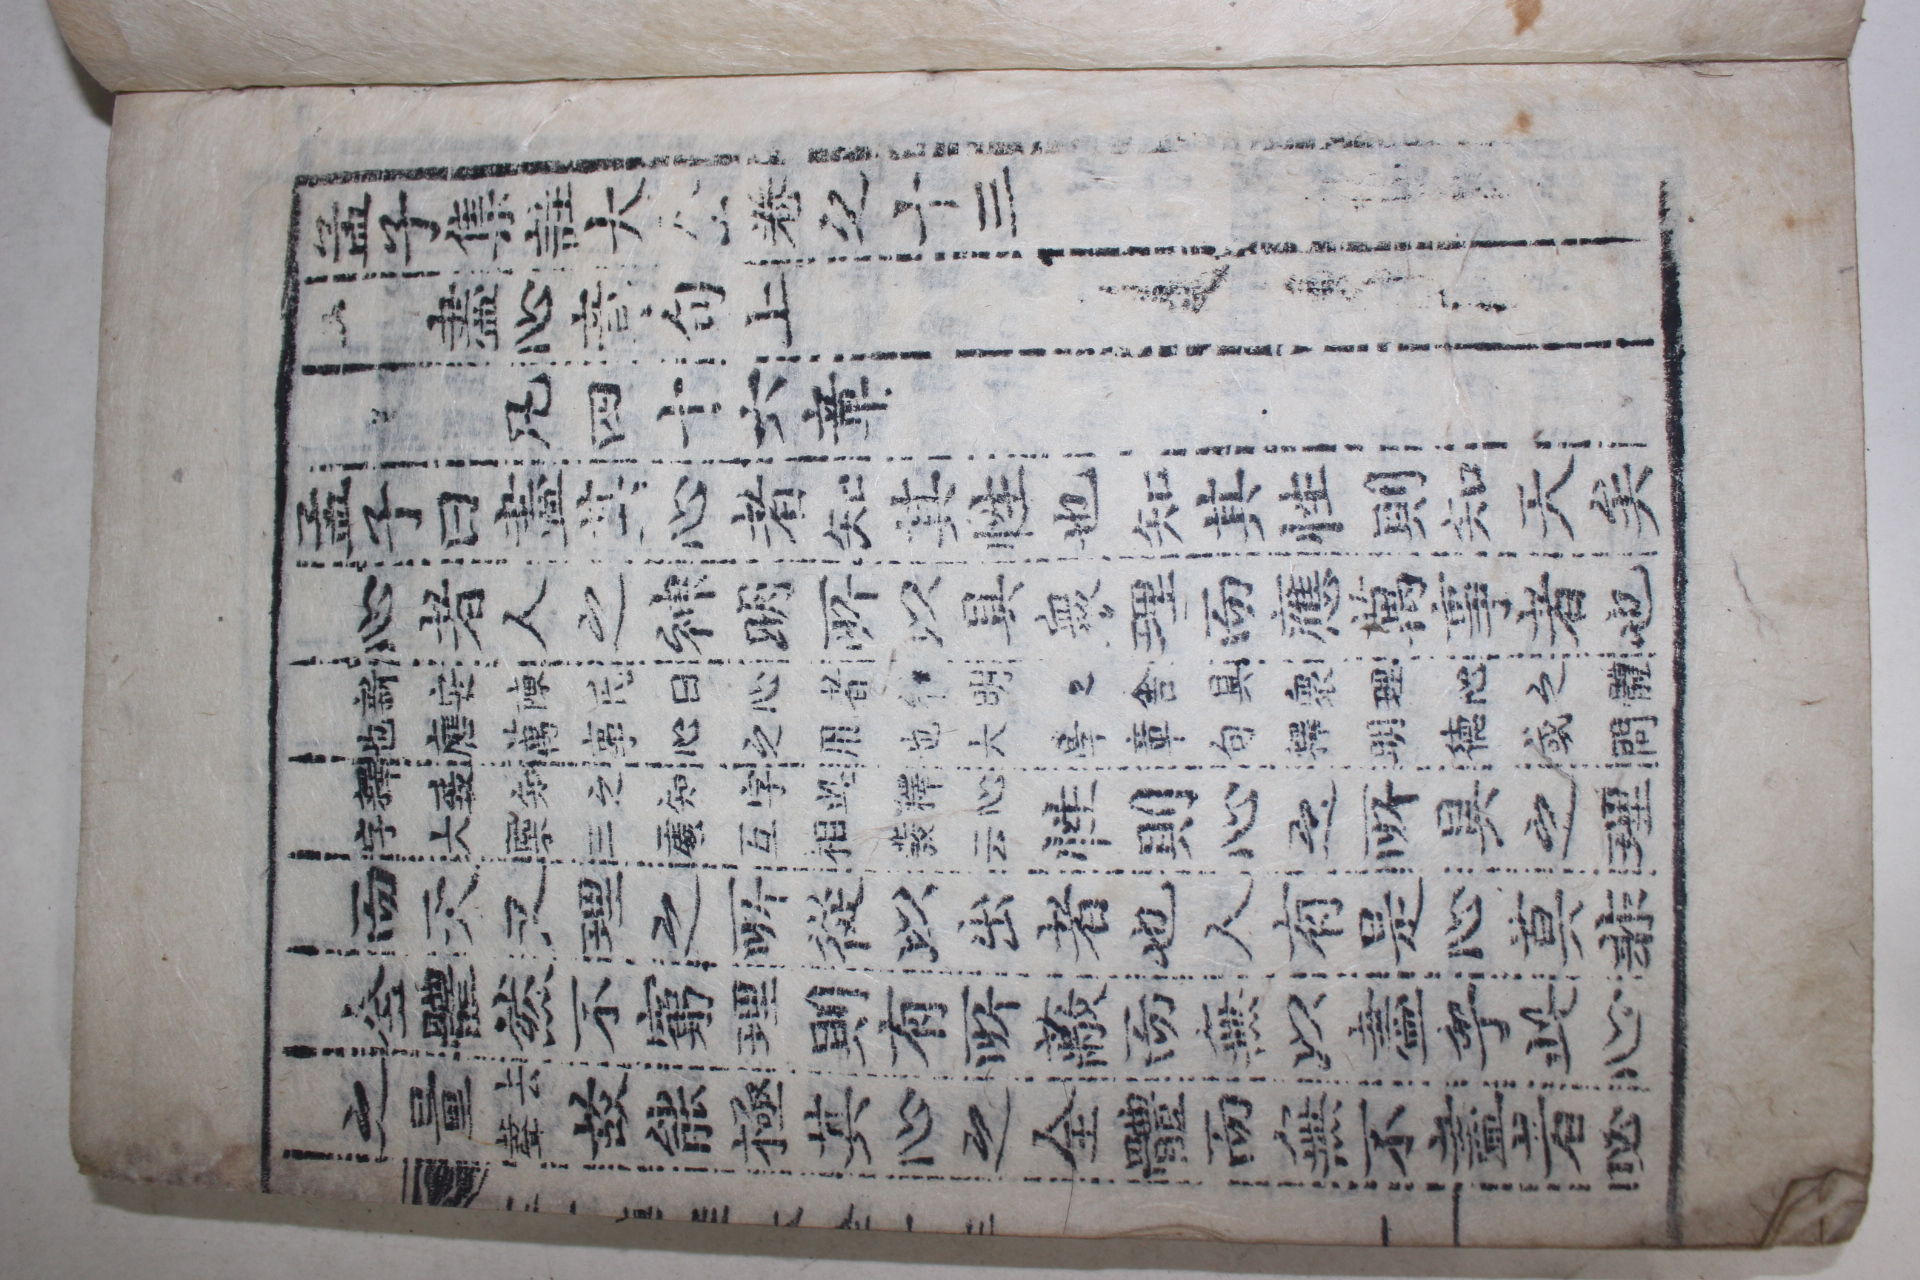 孟子集註大全卷之十三
盡心章句上
凡四十六章
孟子曰盡其心者知其性也知其性則知天矣
心者人之神明所以具衆理而應萬事者也
新安陳氏曰心者神明之舍具衆理心之體
也應萬事心之用也大學章句釋明德或問
釋致知之知字此釋心
字大槩三處互相發云
性則心之所具之理
而天又理之所從以出者也人有是心莫非
全體然不窮理則有所蔽而無以盡乎此心
之量
去
聲
故能極其心之全體而無不盡者必